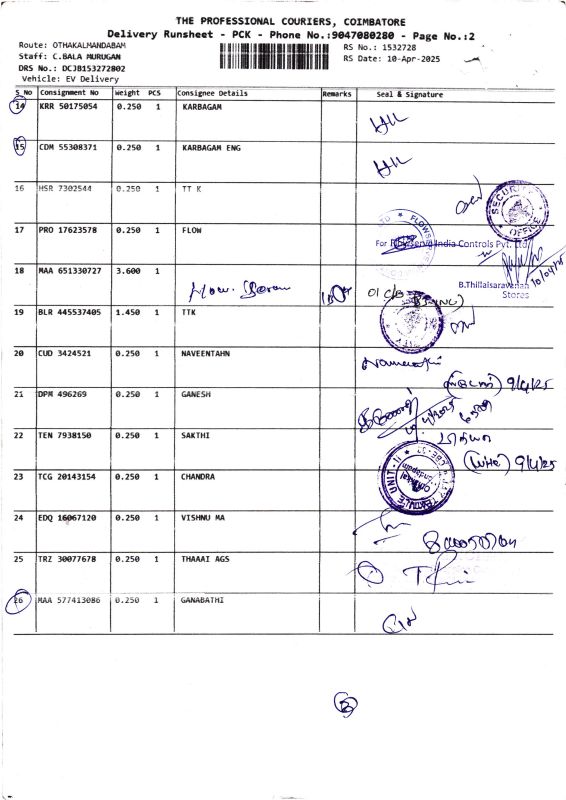 THE PROFESSIONAL COURIERS, COIMBATORE
Delivery Runsheet - PCK - Phone No.:9047080280 - Page No.:2
Route: OTHAKALMANDABAM
RS No.: 1532728
Staff: C.BALA MURUGAN
RS Date: 10-Apr-2025
DRS No.: DCJB153272802
Vehicle: EV Delivery
S_No Consignment No Weight PCS Consignee Details Remarks Seal & Signature
14 KRR 50175054 0.250 1 KARBAGAM
15 CDM 55308371 0.250 1 KARBAGAM ENG
16 HSR 7302544 0.250 1 TT K
SECURITY OFFICE
17 PRO 17623578 0.250 1 FLOW
For Flowserve India Controls Pvt. Ltd
10/04/25
B.Thillaisaravanan
Stores
18 MAA 651330727 3.600 1
19 BLR 445537405 1.450 1 TTK
20 CUD 3424521 0.250 1 NAVEENTAHN
9/4/25
21 DPM 496269 0.250 1 GANESH
22 TEN 7938150 0.250 1 SAKTHI
9/4/25
23 TCG 20143154 0.250 1 CHANDRA
24 EDQ 16067120 0.250 1 VISHNU MA
25 TRZ 30077678 0.250 1 THAAAI AGS
26 MAA 577413086 0.250 1 GANABATHI